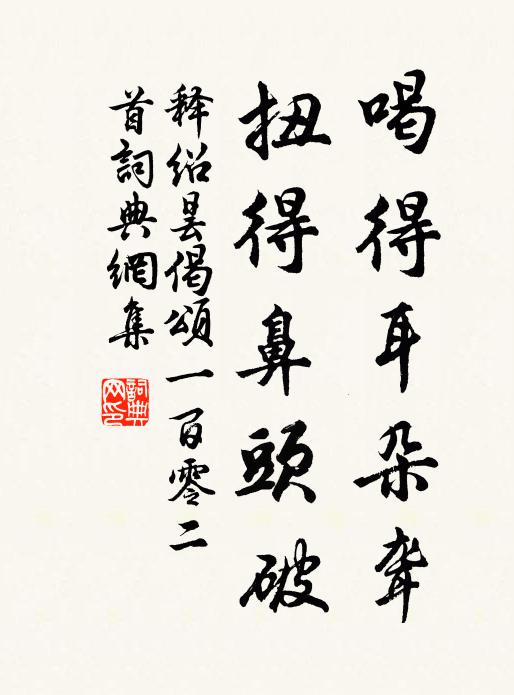 喝得耳朵聋
扭得鼻頭破
释绍昙偈頌一百零二
首詞典網集
詞典
网印